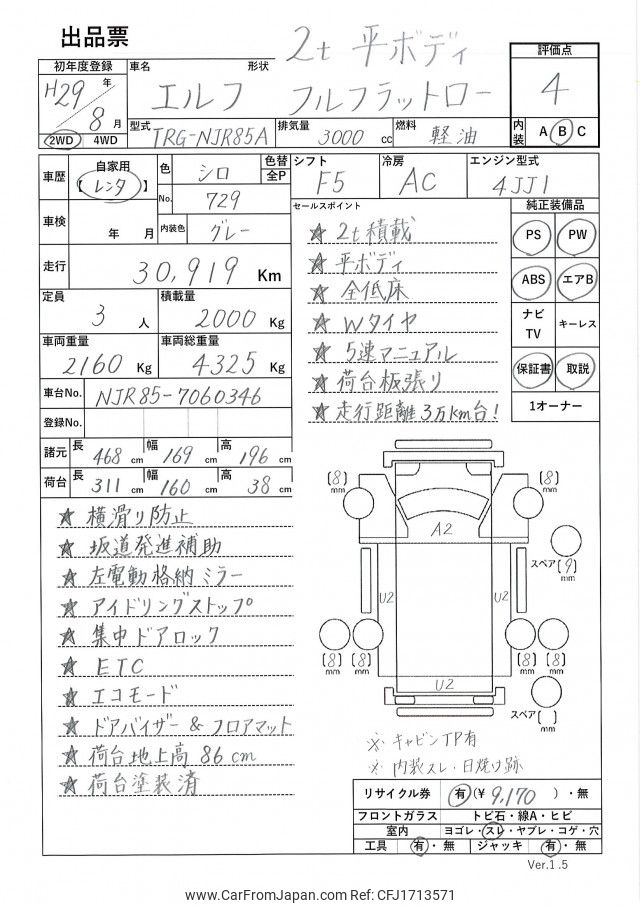 出品票
2t 平ボディ
初年度登録 車名 形状 評価点
H29 年 エルフ フルフラットロー 4
8 月
2WD 4WD 型式 TRG-NJR85A 排気量 3000 cc 燃料 軽油 内装 A B C
車歴 自家用 【レンタ】 色 シロ 色替 全P シフト F5 冷房 AC エンジン型式 4JJ1
No. 729
車検 年 月 内装色 グレー
走行 30,919 Km
定員 3 人 積載量 2000 Kg
車両重量 2160 Kg 車両総重量 4325 Kg
車台No. NJR85-7060346
登録No.
諸元 長 468 cm 幅 169 cm 高 196 cm
荷台 長 311 cm 幅 160 cm 高 38 cm
セールスポイント
★ 2t積載
★ 平ボディ
★ 全低床
★ Wタイヤ
★ 5速マニュアル
★ 荷台板張り
★ 走行距離3万km台!
純正装備品
PS PW
ABS エアB
ナビ TV キーレス
保証書 取説
1オーナー
★ 横滑り防止
★ 坂道発進補助
★ 左電動格納ミラー
★ アイドリングストップ
★ 集中ドアロック
★ ETC
★ エコモード
★ ドアバイザー & フロアマット
★ 荷台地上高 86cm
★ 荷台塗装済
(8) mm (8) mm
A2
スペア (9) mm
U2 U2
(8) mm (8) mm (8) mm (8) mm
U2
スペア ( ) mm
※ キャビンTP有
※ 内装スレ・日焼け跡
リサイクル券 有 (¥ 9,170 )・無
フロントガラス トビ石・線A・ヒビ
室内 ヨゴレ・スレ・ヤブレ・コゲ・穴
工具 有・無 ジャッキ 有・無
Ver.1.5
www.CarFromJapan.com Ref: CFJ1713571